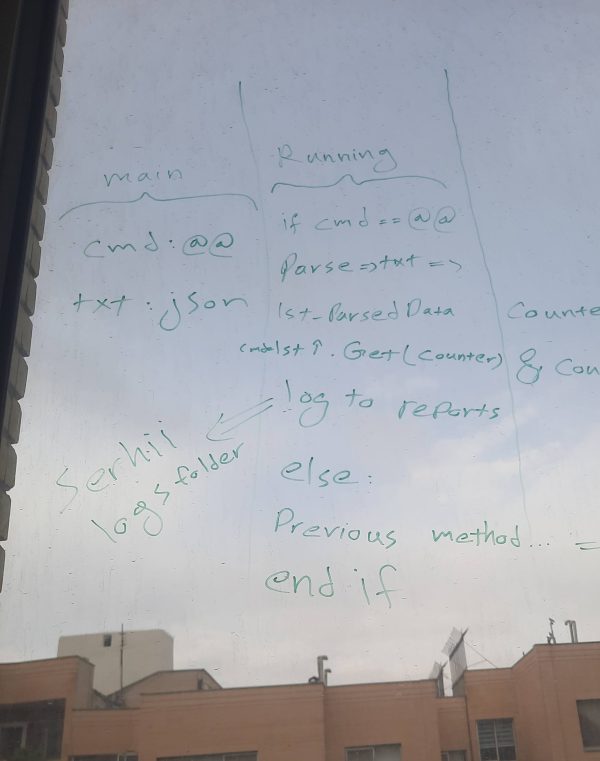 main
cmd: @@
txt: json
Running
if cmd == @@
Parse => txt =>
lst_ParsedData
↑. Get(counter) &
log to reports
Serhii
logs folder
else:
Previous method... =
end if